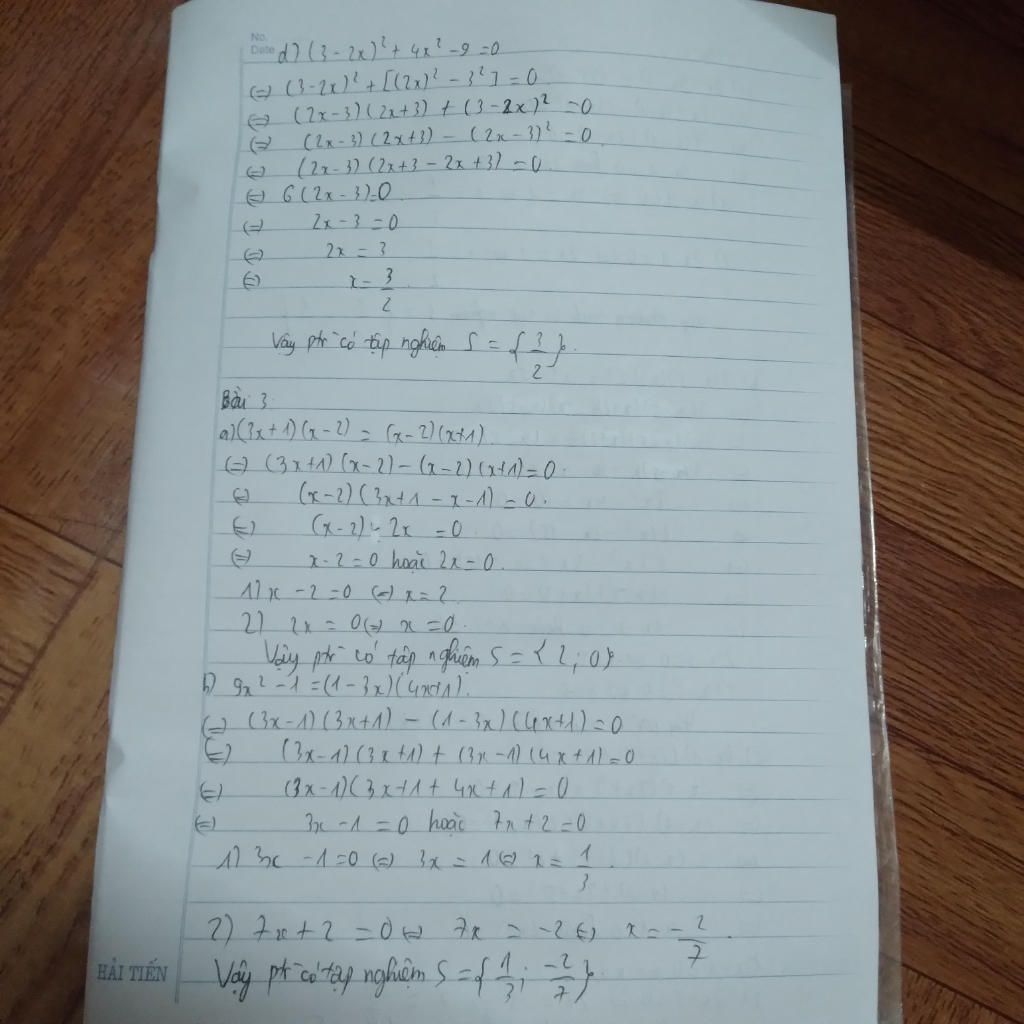 No.
Date
d) (3 - 2x)² + 4x² - 9 = 0
(=) (3-2x)² + [(2x)² - 3²] = 0
(=) (2x-3)(2x+3) + (3-2x)² = 0
(=) (2x-3)(2x+3) - (2x-3)² = 0
(=) (2x-3)(2x+3 - 2x+3) = 0
(=) 6(2x-3)=0
(=) 2x-3 = 0
(=) 2x = 3
(=) x = 3/2
Vậy ptr có tập nghiệm S = {3/2}.
Bài 3
a) (3x+1)(x-2) = (x-2)(x+1)
(=) (3x+1)(x-2) - (x-2)(x+1) = 0.
(=) (x-2)(3x+1 - x-1) = 0.
(=) (x-2) . 2x = 0
(=) x-2 = 0 hoặc 2x = 0.
1) x - 2 = 0 (=) x = 2
2) 2x = 0 (=) x = 0.
Vậy ptr có tập nghiệm S = {2; 0}
b) 9x² - 1 = (1-3x)(4x+1).
(=) (3x-1)(3x+1) - (1-3x)(4x+1) = 0
(=) (3x-1)(3x+1) + (3x-1)(4x+1) = 0
(=) (3x-1)(3x+1 + 4x+1) = 0
(=) 3x - 1 = 0 hoặc 7x+2 = 0
1) 3x - 1 = 0 (=) 3x = 1 (=) x = 1/3.
2) 7x + 2 = 0 (=) 7x = -2 (=) x = -2/7.
Vậy ptr có tập nghiệm S = {1/3; -2/7}
HẢI TIẾN